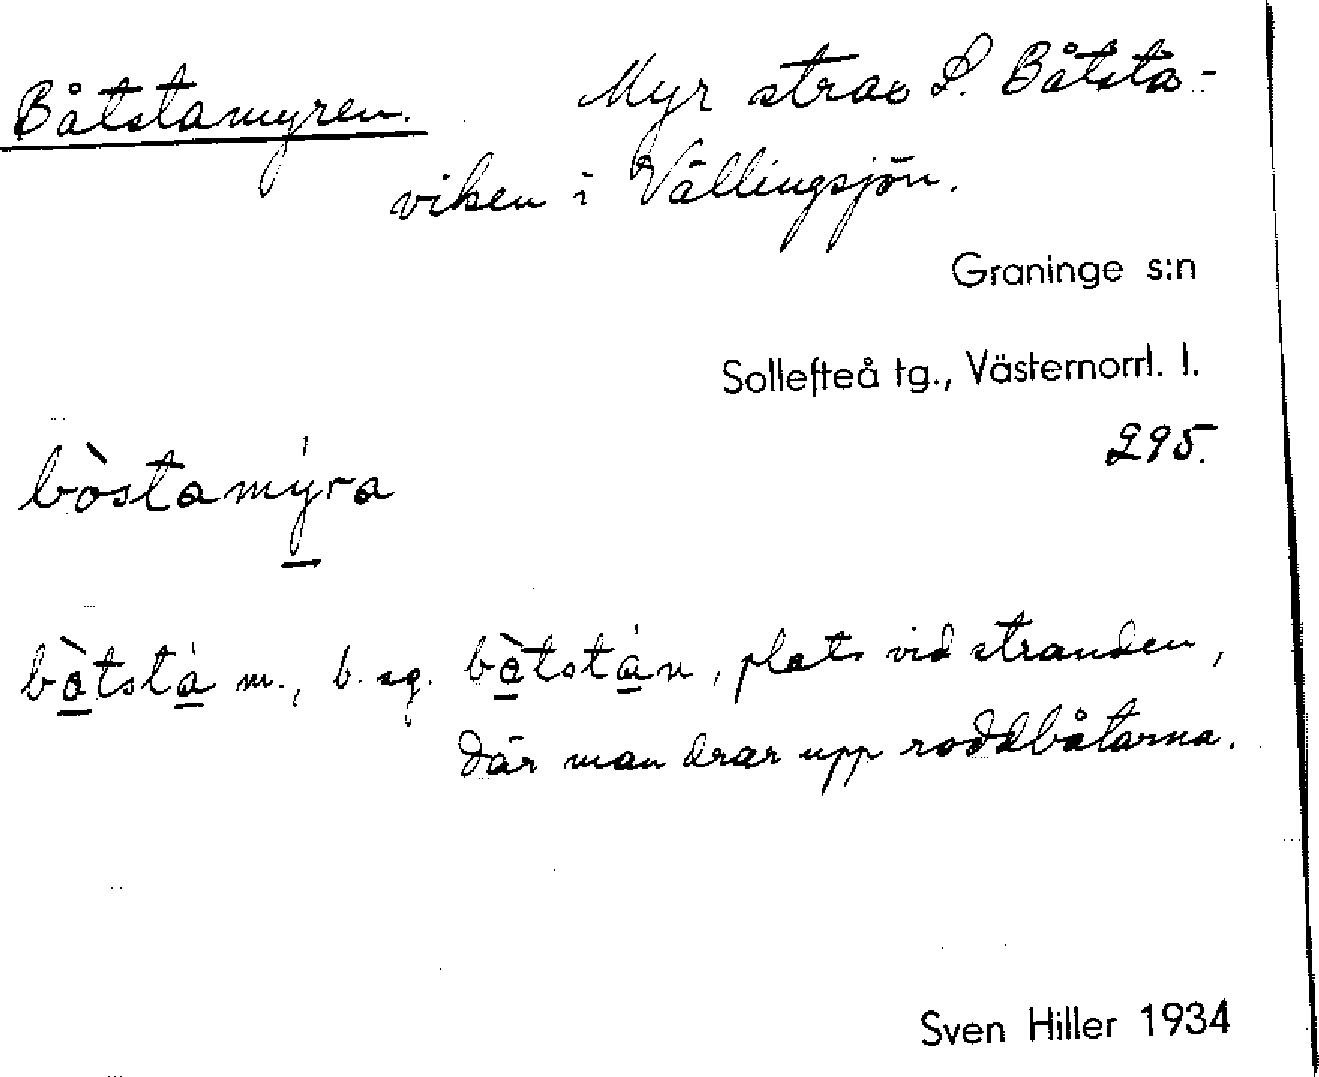 Båtstamyren. Myr strax S. Båtsta-
viken i Vällingsjön.
Graninge s:n
Sollefteå tg., Västernorrl. l.
295.
bòstamýra
bàtstá m., b. sg. bàtstán, plats vid stranden,
där man drar upp roddbåtarna.
Sven Hiller 1934